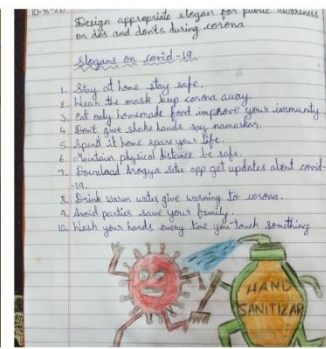 Design appropriate slogan for public awareness
on dos and donts during corona
Slogans on covid-19.
1. Stay at home stay safe.
2. Wear the mask keep corona away.
3. Eat only homemade food improve your immunity
4. Dont give shake hands say namaskar.
5. Spend it home spare your life.
6. Maintain physical distance be safe.
7. Download Arogya setu app get updates about covid-
-19.
8. Drink warm water give warning to corona.
9. Avoid parties save your family.
10. Wash your hands every time you touch something
HAND
SANITIZAR